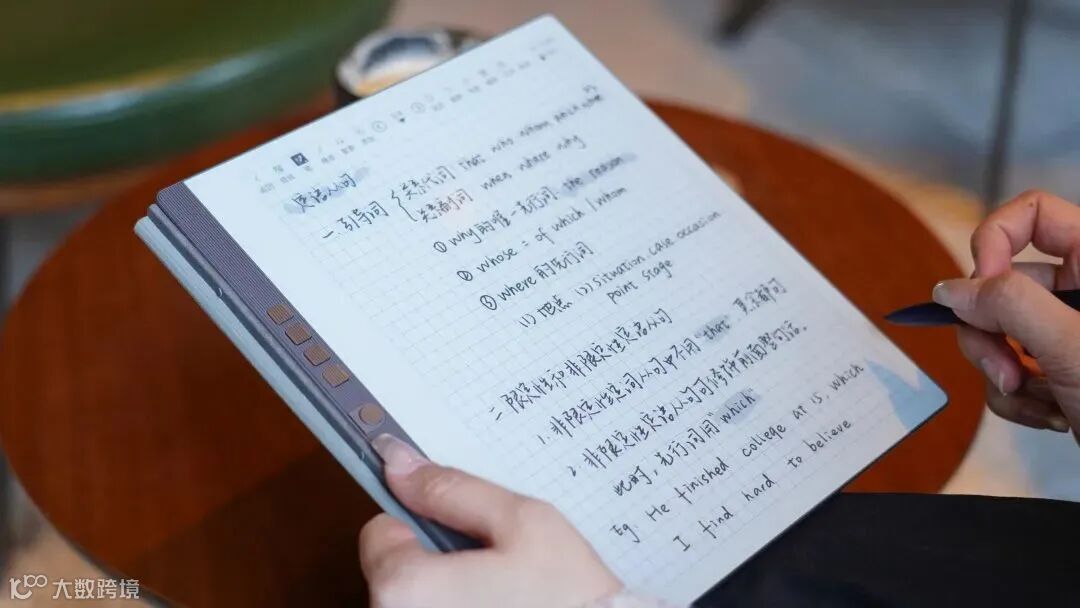 定语从句
一. 引导词 { 关系代词 that who whom which 的 whose
关系副词 when where why
① why 的唯一先行词 the reason
② whose = of which / whom
③ where 的先行词
(1) 地点 (2) situation case occasion
point stage
二. 限定性和非限定性定语从句
1. 非限定性定词从句中不用 "that" 其余都可
2. 非限定性定语从句可修饰前面整句话.
此时, 先行词用 "which"
Eg. He finished college at 15, which
I find hard to believe
大数跨境